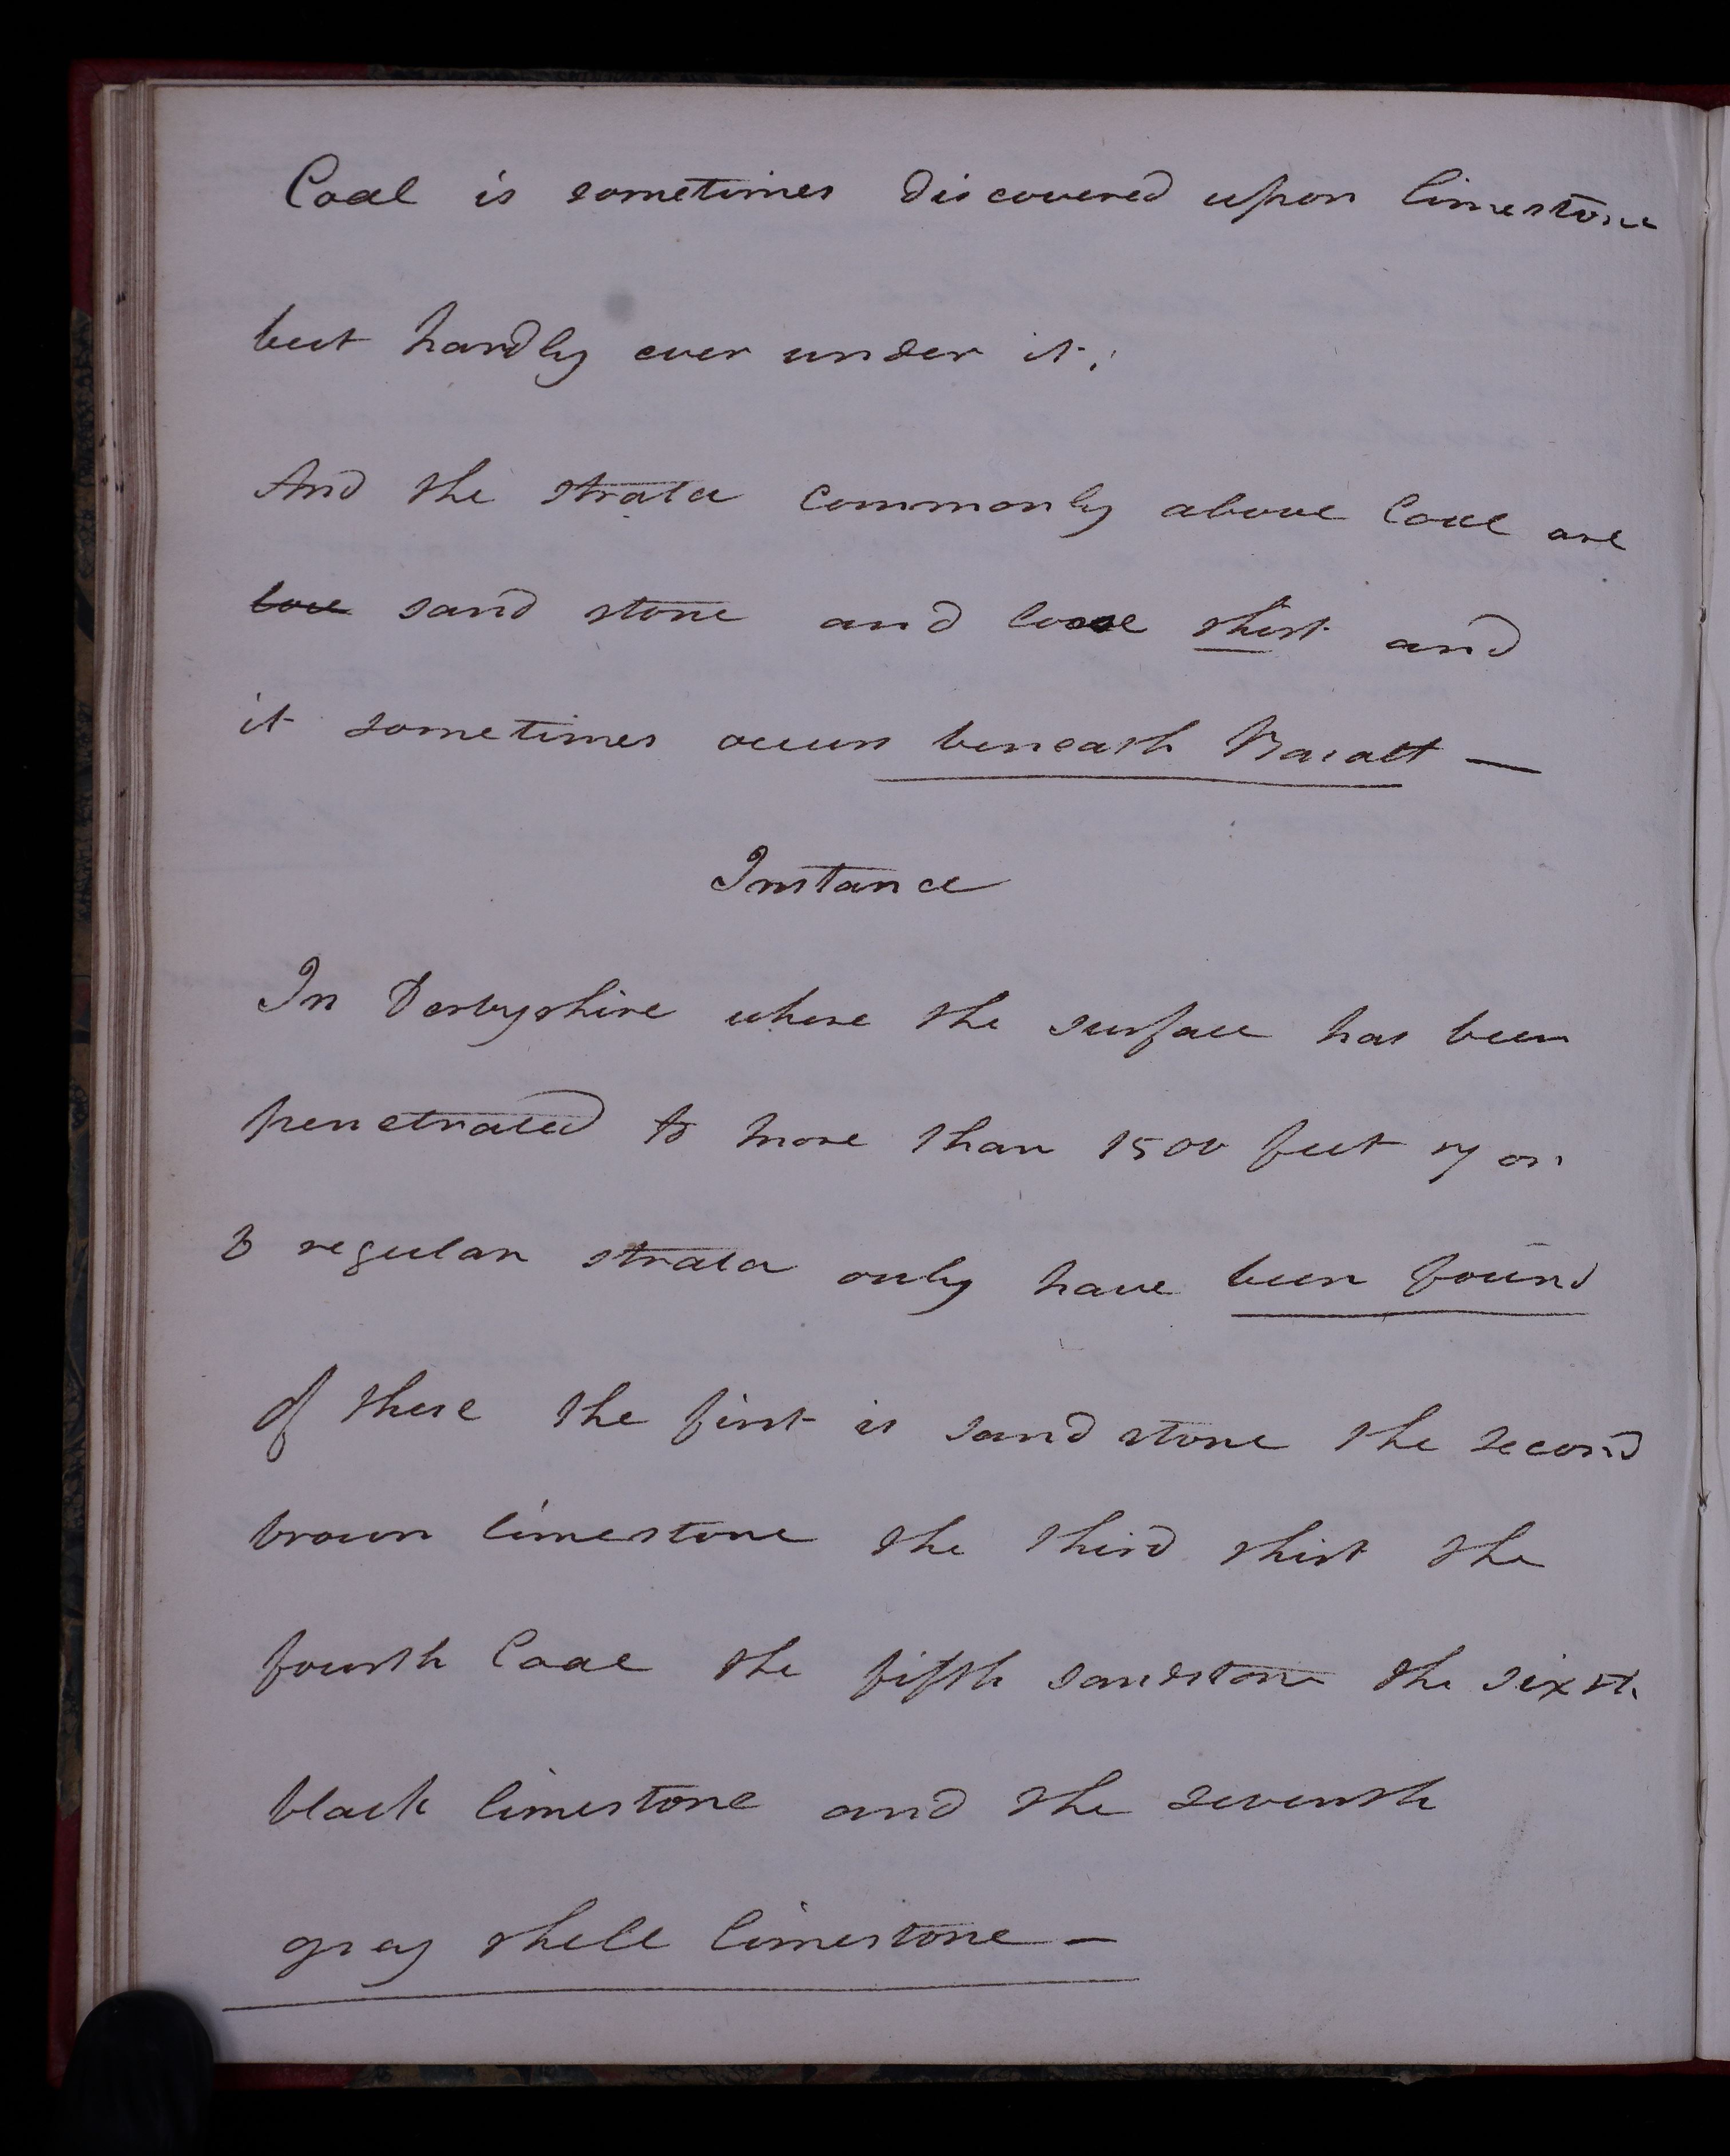 Coal is sometimes discovered upon limestone
but hardly ever under it;
And the strata commonly above Coal are
sand stone and loose shist and
it sometimes occurs beneath Basalt —
Instance
In Derbyshire where the surface has been
penetrated to more than 1500 feet 7 or
8 regular strata only have been found
Of these the first is sand stone the second
brown limestone the third shist the
fourth Coal the fifth sandstone the sixth
black limestone and the seventh
gray shell limestone —